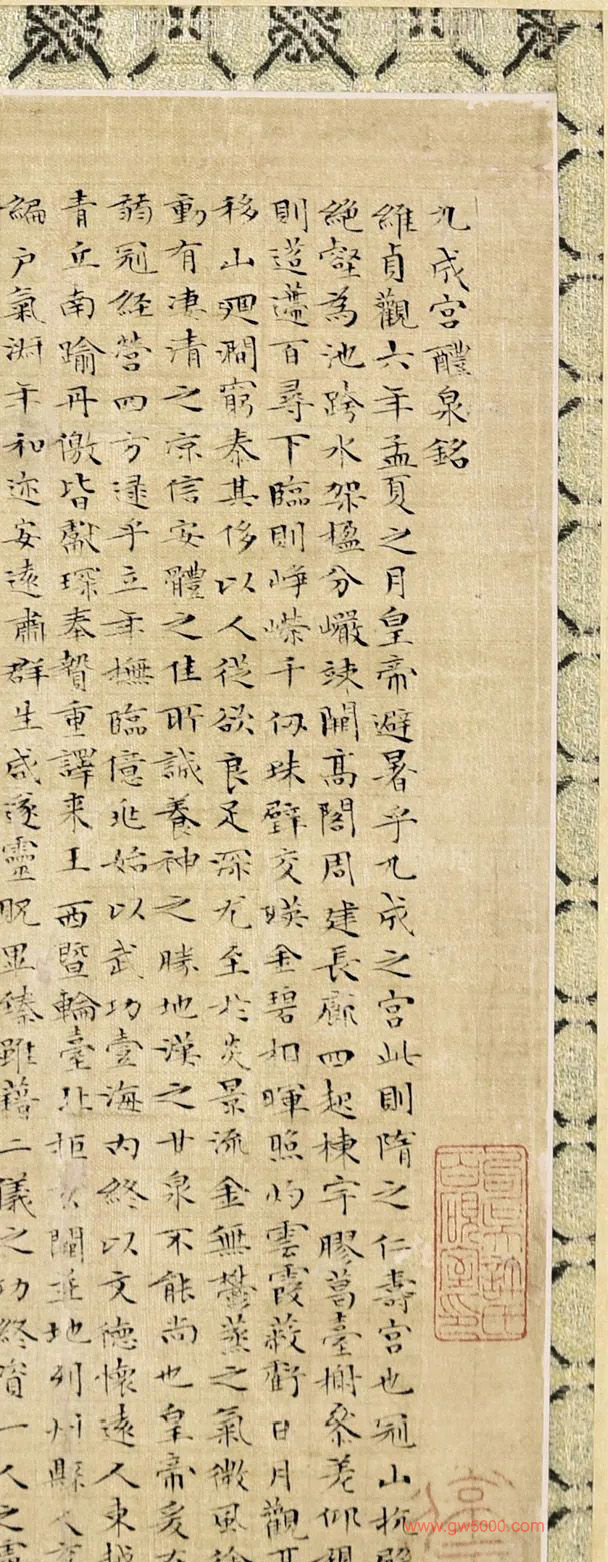 九成宮醴泉銘
維貞觀六年孟夏之月皇帝避暑乎九成之宮此則隋之仁壽宮也冠山抗殿
絕壑為池跨水架楹分巖竦闕高閣周建長廊四起棟宇膠葛臺榭參差仰視
則迢遰百尋下臨則崢嶸千仞珠壁交暎金碧相暉照灼雲霞蔽虧日月觀其
移山迴澗窮泰其侈以人從欲良足深尤至於炎景流金無鬱蒸之氣微風徐
動有凄清之涼信安體之佳所誠養神之勝地漢之甘泉不能尚也皇帝爰在
弱冠經營四方逮乎立年撫臨億兆始以武功壹海內終以文德懷遠人東越
青丘南踰丹徼皆獻琛奉贄重譯来王西暨輪臺北拒玄闕並地列州縣人充
編戶氣淑年和迩安遠肅群生咸遂靈貺畢臻雖藉二儀之功終資一人之慮
www.gw5000.com